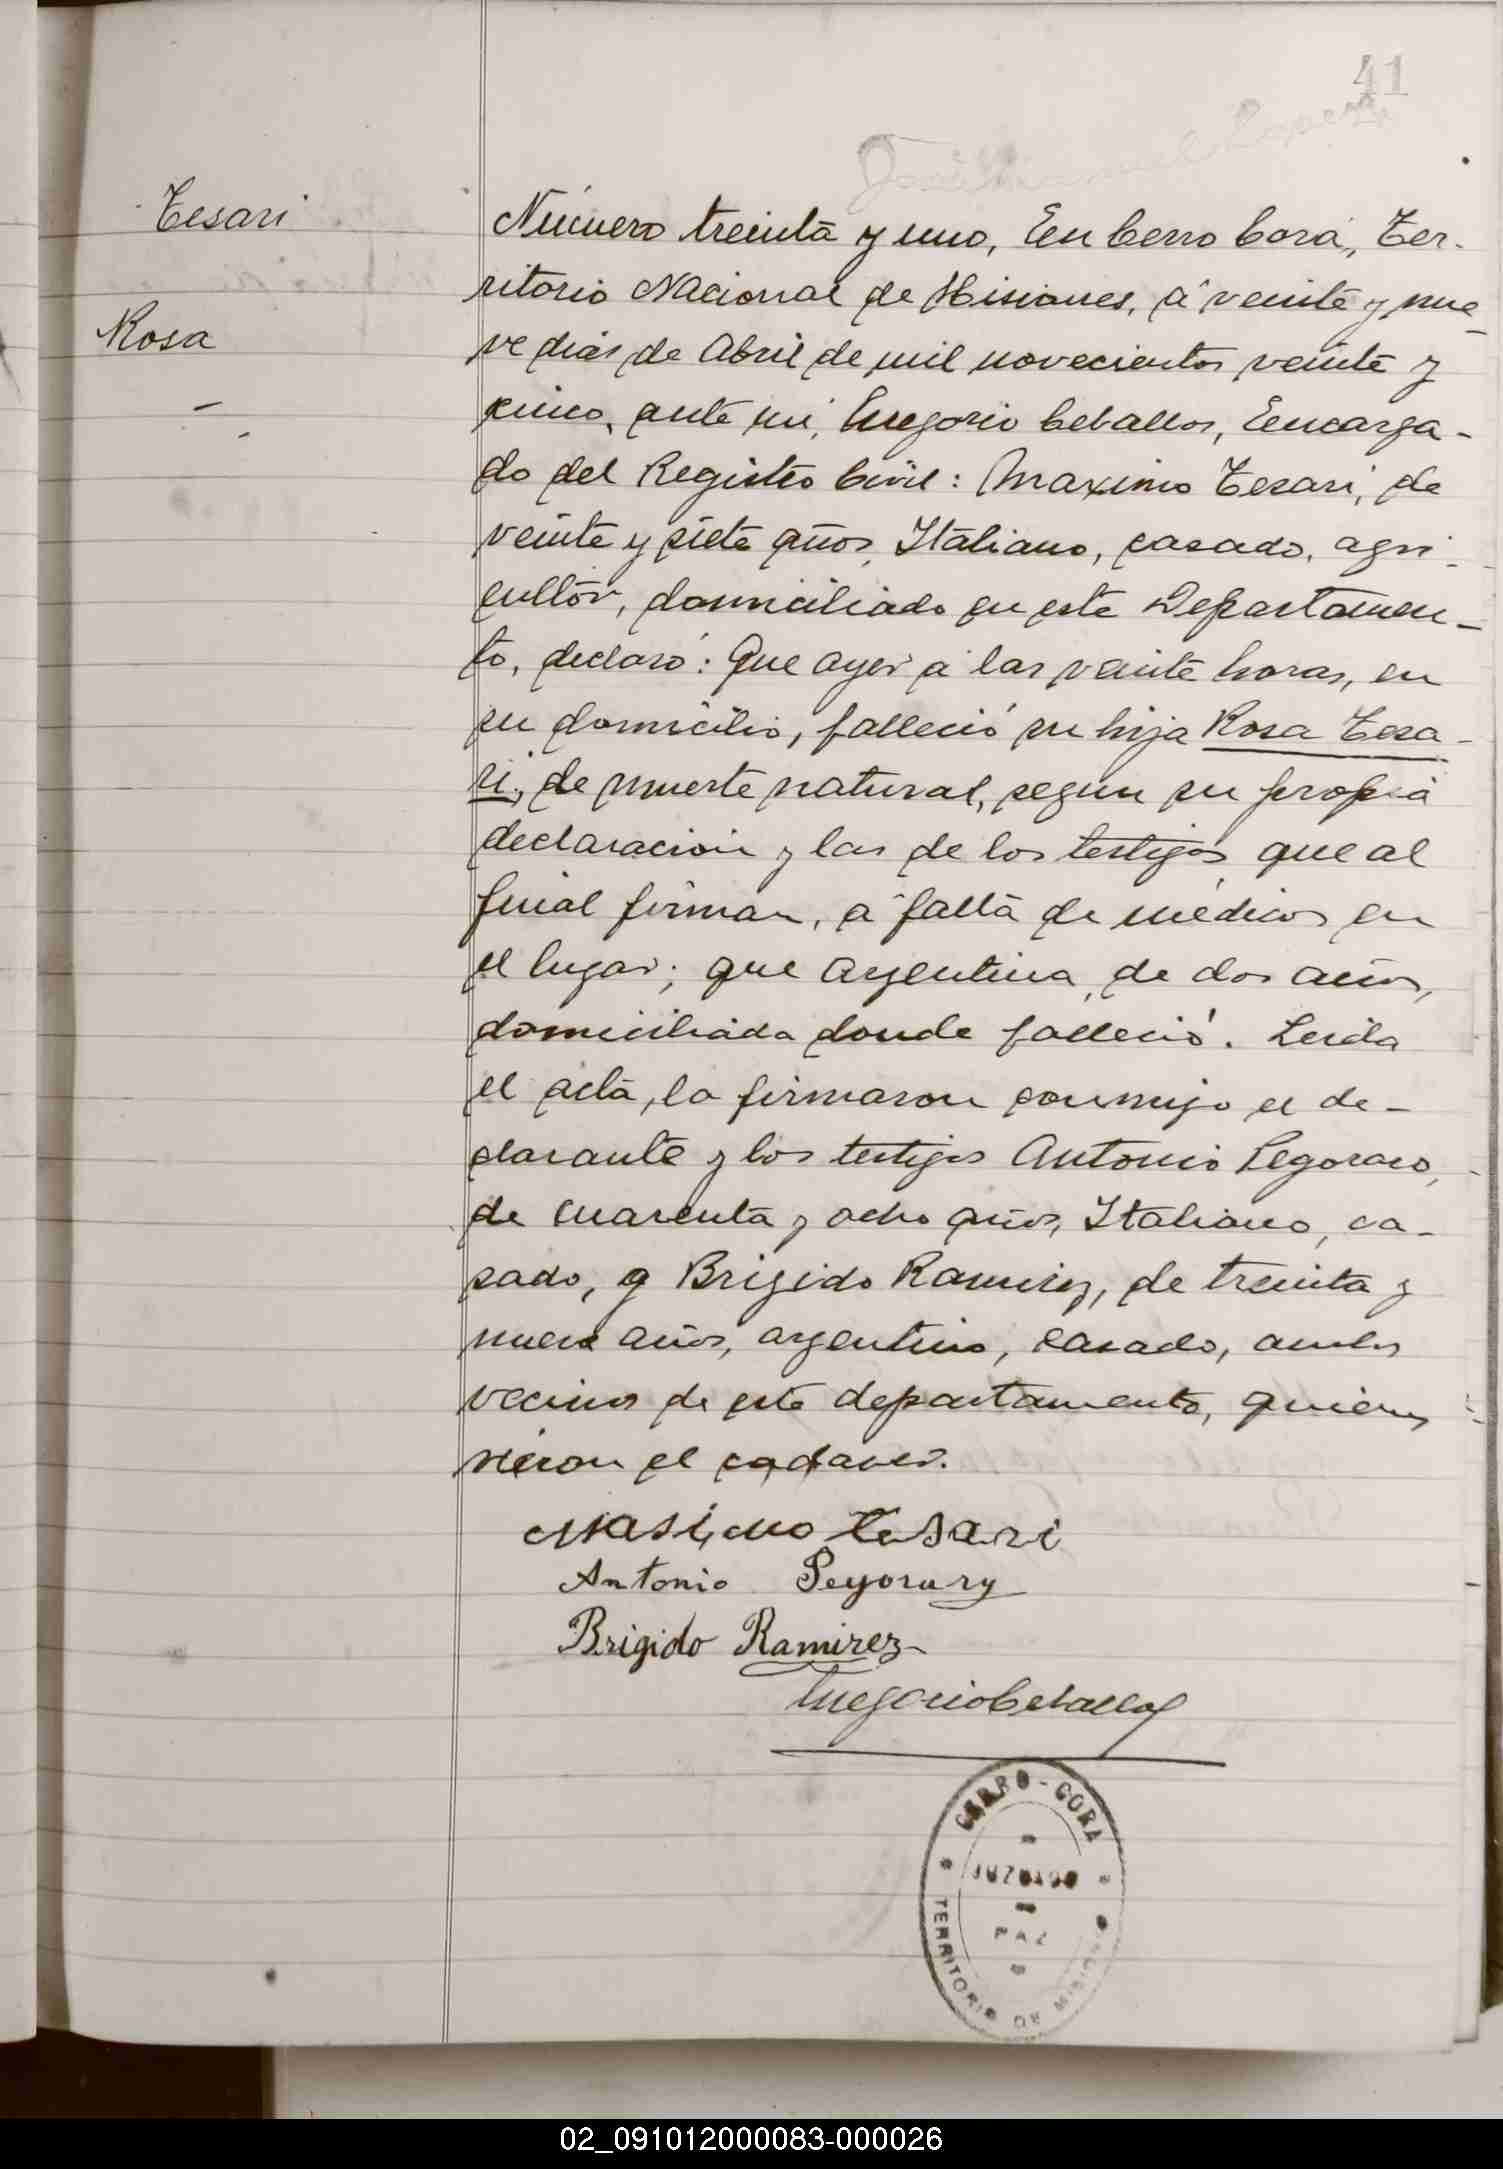 41
Tesari
Rosa
Número treinta y uno, En Cerro Corá, Ter-
ritorio Nacional de Misiones, á veinte y nue-
ve dias de Abril de mil novecientos veinte y
cinco, ante mi, Gregorio Ceballos, Encarga-
do del Registro Civil: Maximo Tesari, de
veinte y siete años, Italiano, casado, agri-
cultor, domiciliado en este Departamen-
to, declaró: Que ayer á las veinte horas, en
su domicilio, falleció su hija Rosa Tesa-
ri, de muerte natural, segun su propia
declaracion y las de los testigos que al
final firman, a falta de médicos en
el lugar; que argentina, de dos años,
domiciliada donde falleció. Leida
el acta, la firmaron conmigo el de-
clarante y los testigos Antonio Pegoraro,
de cuarenta y ocho años, Italiano, ca-
sado, y Brigido Ramirez, de treinta y
nueve años, argentino, casado, ambos
vecinos de este departamento, quienes
vieron el cadaver.
Masimo Tesari
Antonio
Brigido Ramirez
Gregorio Ceballos
CERRO-CORA
JUZGADO
PAZ
TERRITORIO DE MISIONES
02_091012000083-000026